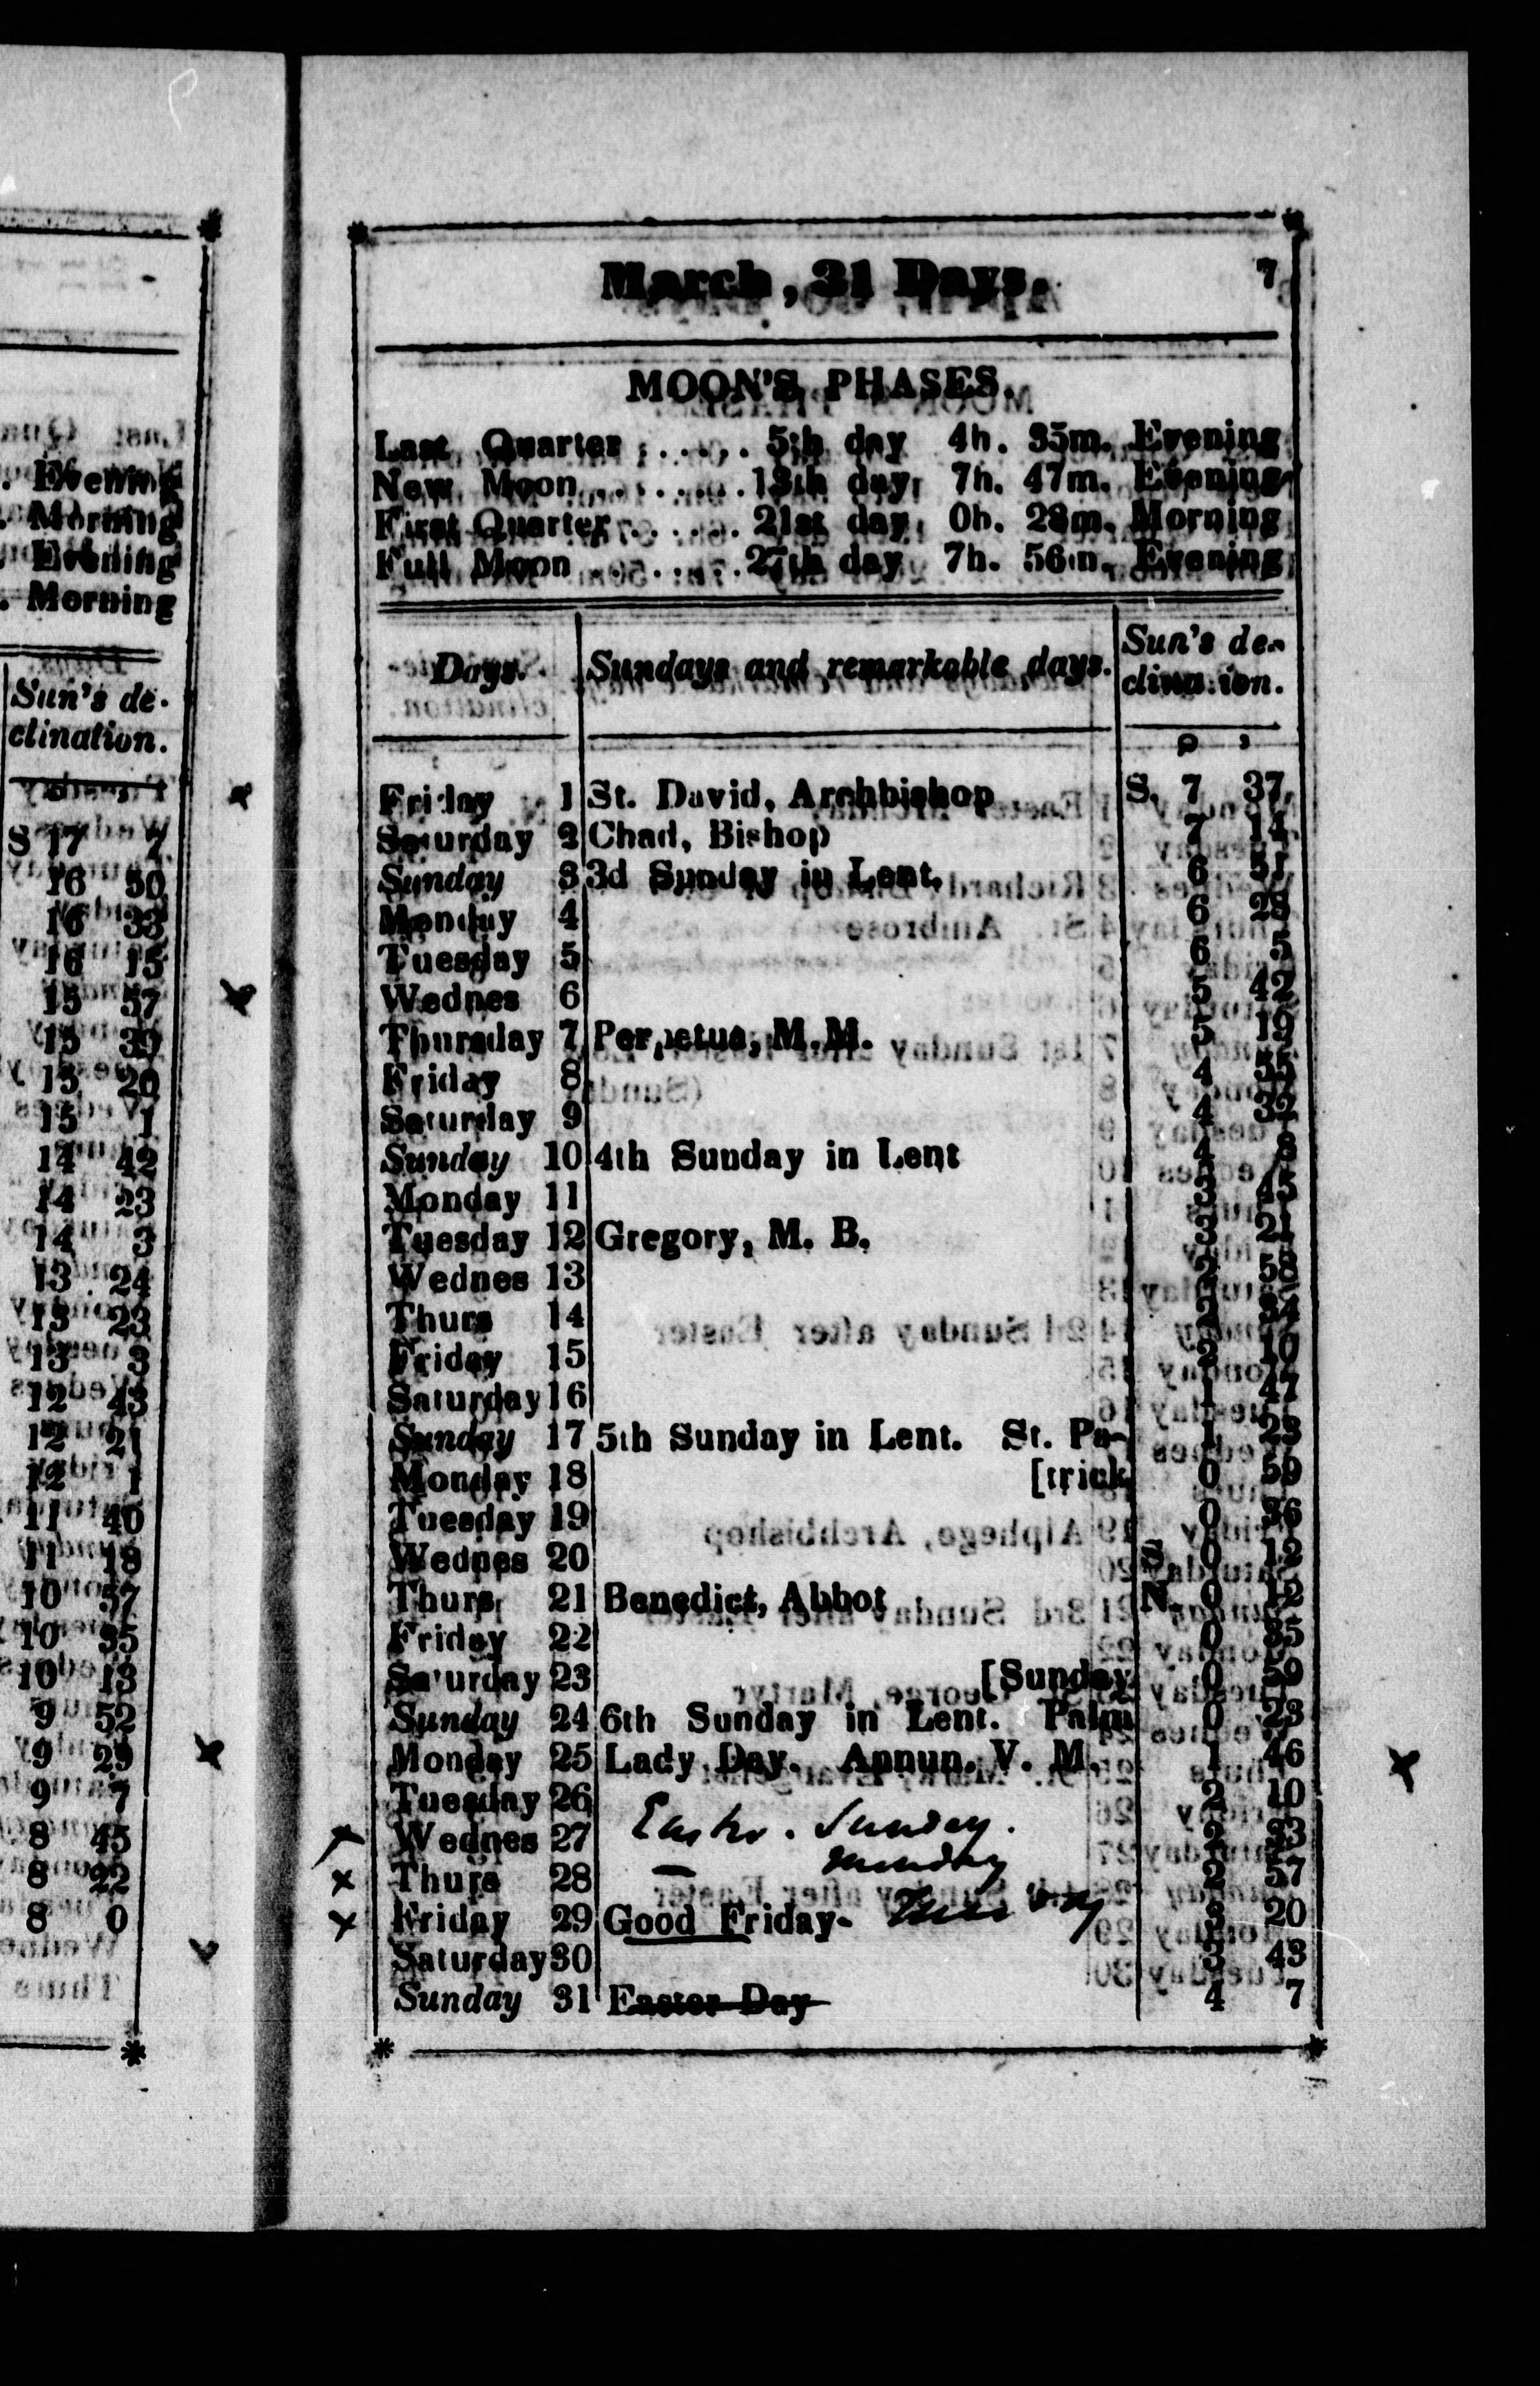 Evening
Morning
Evening
Morning
Sun's de-
clination.
S 17 7
16 50
16 33
16 15
15 57
15 39
15 20
15 1
14 42
14 23
14 3
13 24
13 23
13 3
12 43
12 21
12 1
11 40
11 18
10 57
10 35
10 13
9 52
9 29
9 7
8 45
8 22
8 0
March, 31 Days. 7
MOON'S PHASES.
Last Quarter ...... 5th day 4h. 35m. Evening
New Moon ........ 13th day, 7h. 47m. Evening
First Quarter ...... 21st day, 0h. 28m. Morning
Full Moon ........ 27th day 7h. 56m. Evening
Days. Sundays and remarkable days. Sun's de-
clination.
Friday 1 St. David, Archbishop S. 7 37
Saturday 2 Chad, Bishop 7 14
Sunday 3 3d Sunday in Lent. 6 51
Monday 4 6 28
Tuesday 5 6 5
Wednes 6 5 42
Thursday 7 Perpetua, M.M. 5 19
Friday 8 4 55
Saturday 9 4 32
Sunday 10 4th Sunday in Lent 4 8
Monday 11 3 45
Tuesday 12 Gregory, M. B. 3 21
Wednes 13 2 58
Thurs 14 2 34
Friday 15 2 10
Saturday 16 1 47
Sunday 17 5th Sunday in Lent. St. Pa- 1 23
Monday 18 [trick 0 59
Tuesday 19 0 36
Wednes 20 S. 0 12
Thurs 21 Benedict, Abbot N. 0 12
Friday 22 0 35
Saturday 23 [Sunday 0 59
Sunday 24 6th Sunday in Lent. Palm 0 23
Monday 25 Lady Day. Annun. V. M. 1 46
Tuesday 26 2 10
Wednes 27 Easter. Sunday. 2 33
Thurs 28 — Monday 2 57
Friday 29 Good Friday- Tuesday 3 20
Saturday 30 3 43
Sunday 31 Easter Day 4 7